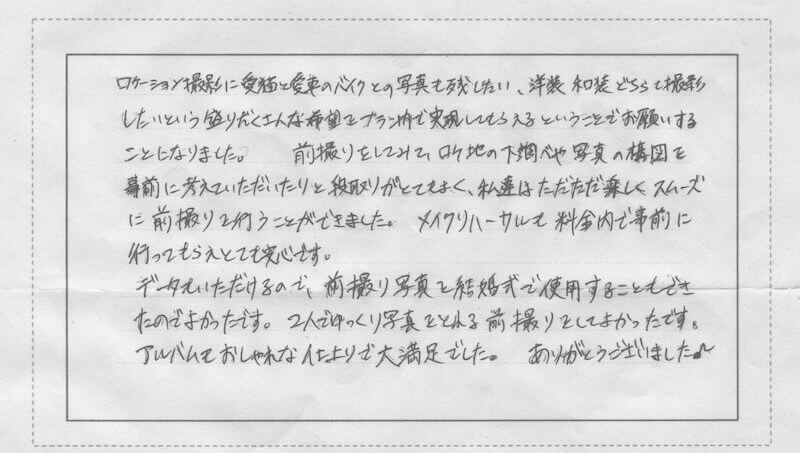 ロケーション撮影に愛猫と愛車のバイクとの写真も残したい、洋装 和装どちらも撮影
したいという盛りだくさんな希望をプラン内で実現してもらえるということでお願いする
ことになりました。 前撮りをしてみて、ロケ地の下調べや写真の構図を
事前に考えていただいたりと段取りがとてもよく、私達はただただ楽しくスムーズ
に前撮りを行うことができました。 メイクリハーサルも料金内で事前に
行ってもらえとても安心です。
データもいただけるので、前撮り写真を結婚式で使用することもでき
たのでよかったです。2人でゆっくり写真をとれる前撮りをしてよかったです。
アルバムもおしゃれな仕上りで大満足でした。 ありがとうございました♪